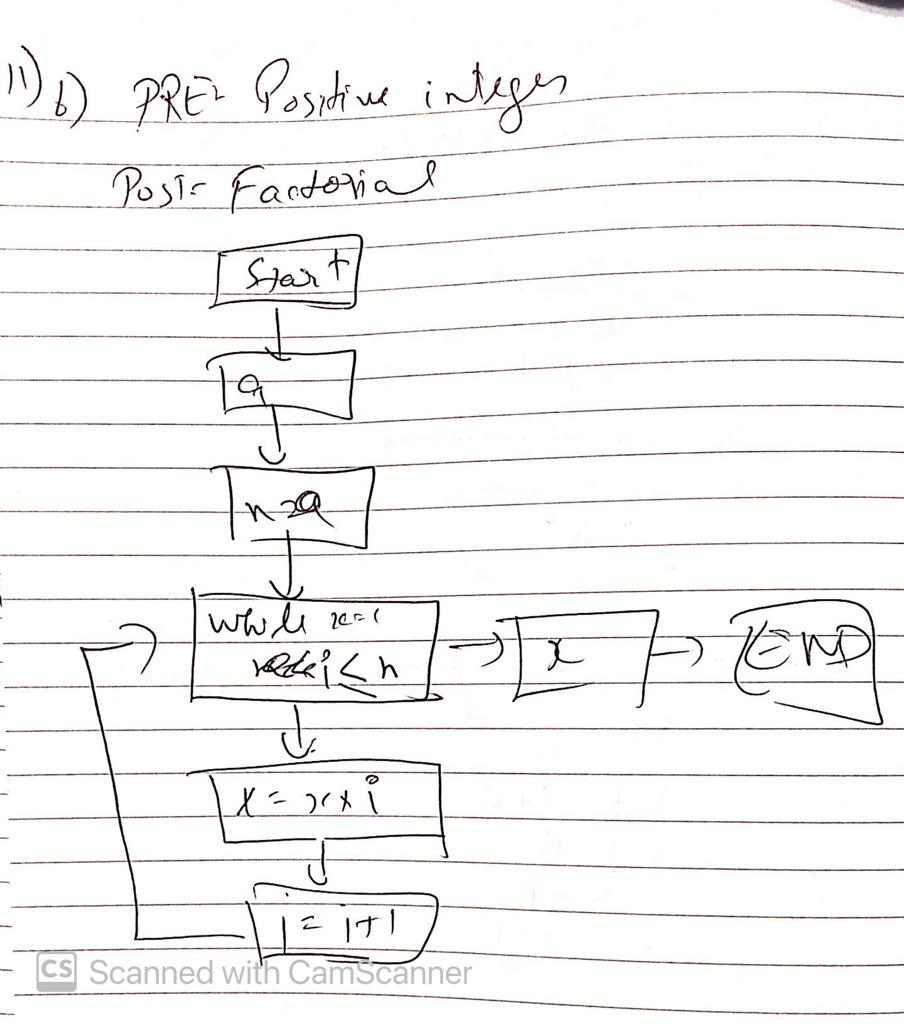 11) b) PRE- Positive integer
Post- Factorial
Start
a
n=a
while x=1
i≤n
x
END
x = x x i
i = i+1
CS Scanned with CamScanner